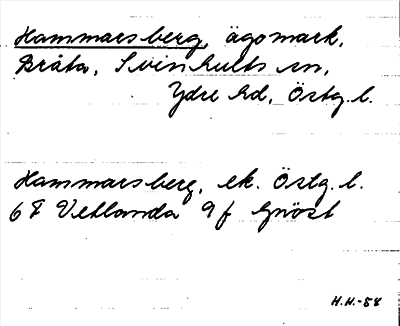 Hammarsberg, ägomark,
Bråta, Svinhults sn,
Ydre hd, Östg. l.
Hammarsberg, ek. Östg. l.
6 F Vetlanda 9 f Gnöst
H.H.-58